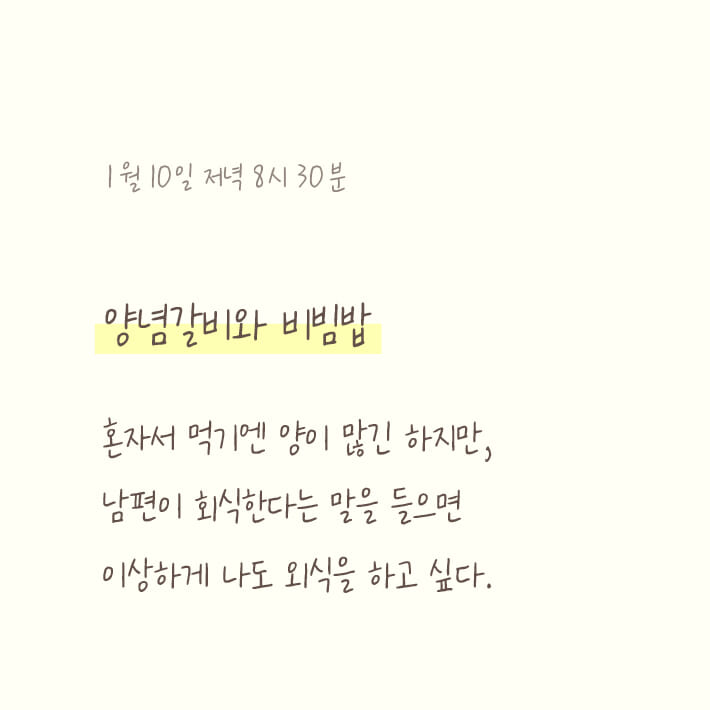 1월 10일 저녁 8시 30분
양념갈비와 비빔밥
혼자서 먹기엔 양이 많긴 하지만,
남편이 회식한다는 말을 들으면
이상하게 나도 외식을 하고 싶다.